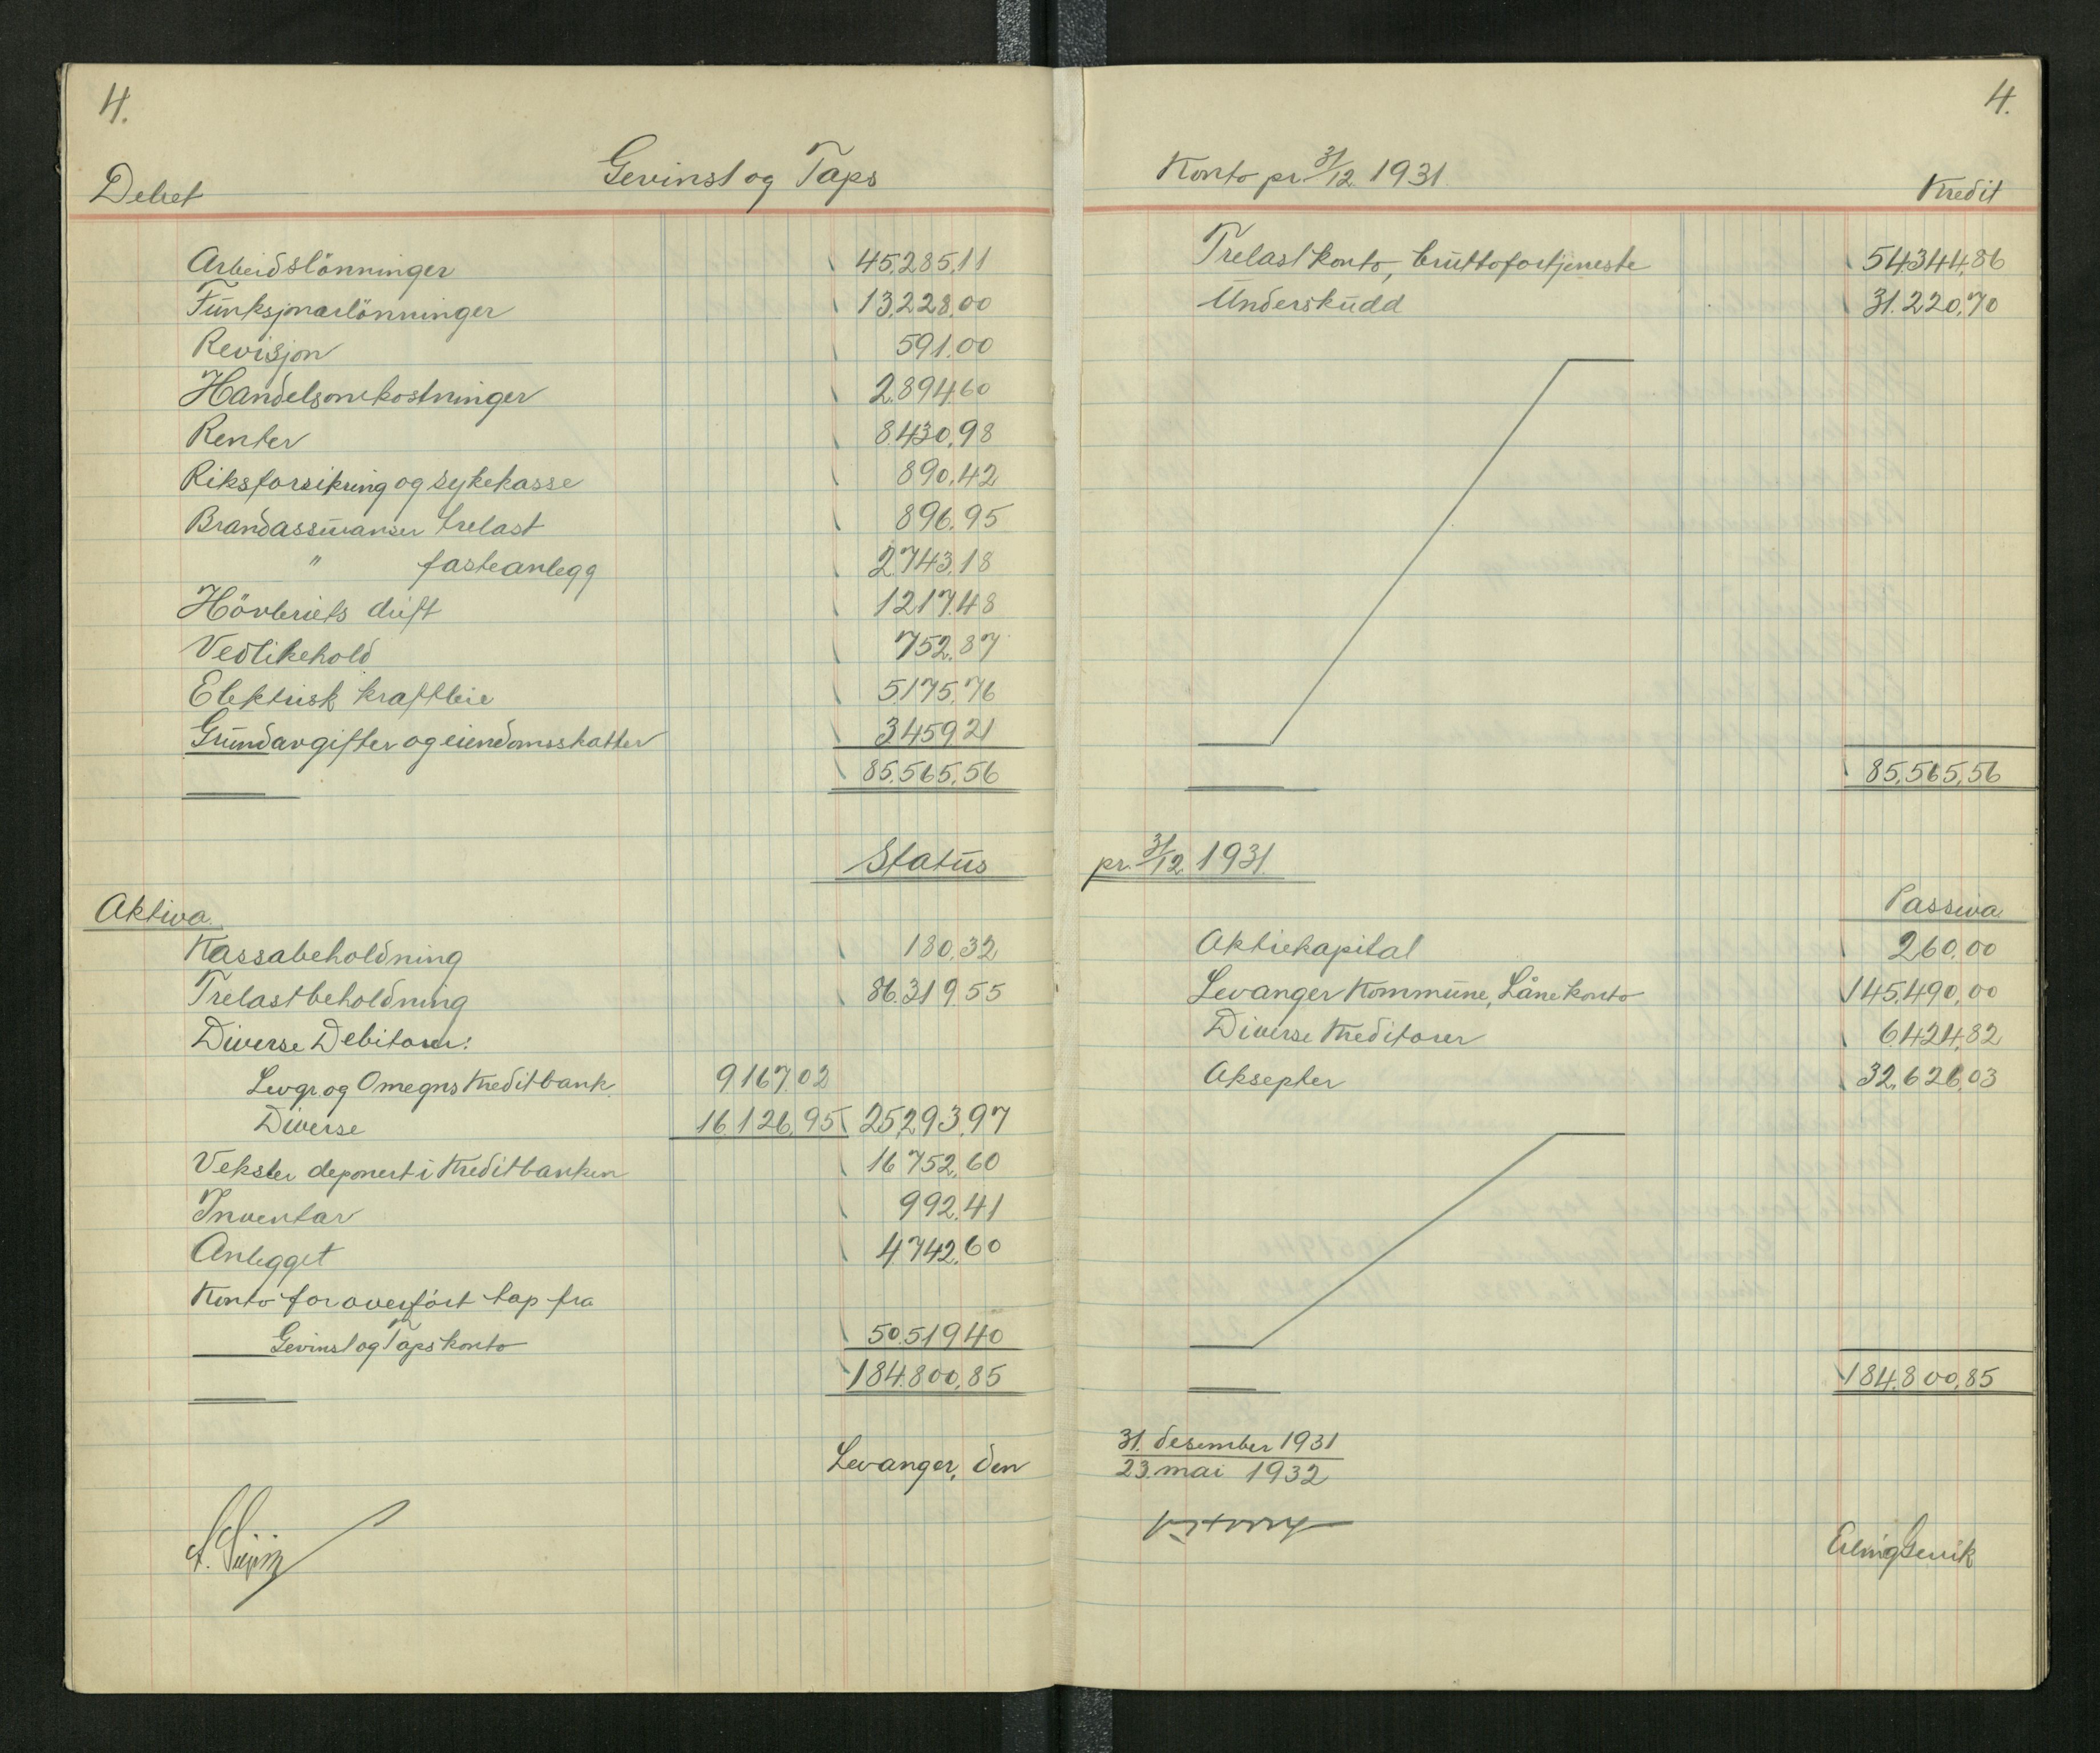 4.
Debet
Gevinst og Taps
Arbeidslönninger 45.285,11
Funksjonærlönninger 13.228,00
Revisjon 591.00
Handelsomkostninger 2.894.60
Renter 8.430,98
Riksforsikring og sykekasse 890.42
Brandassuranser trelast 896.95
" faste anlegg 2.743.18
Hövleriets drift 1.217.48
Vedlikehold 752.87
Elektrisk kraftleie 5.175.76
Grundavgifter og eiendomsskatter 3.459.21
85.565,56
Status
Aktiva.
Kassabeholdning 180,32
Trelastbeholdning 86.319.55
Diverse Debitorer:
Levgr. og Omegns Kreditbank. 9.167.02
Diverse 16.126.95 25.293,97
Veksler deponert i Kreditbanken 16.752,60
Inventar 992.41
Anlegget 4.742.60
Konto for overført tap fra
Gevinst og Tapskonto 50.519.40
184.800,85
Levanger, den
4.
Konto pr. 31/12 1931.
Kredit
Trelastkonto, bruttofortjeneste 54.344,86
Underskudd 31.220,70
85.565,56
pr. 31/12 1931.
Passiva
Aktiekapital 260,00
Levanger Kommune, Lånekonto 145.490,00
Diverse Kreditorer 6.424,82
Aksepter 32.626,03
184.800,85
31. desember 1931
23. mai 1932